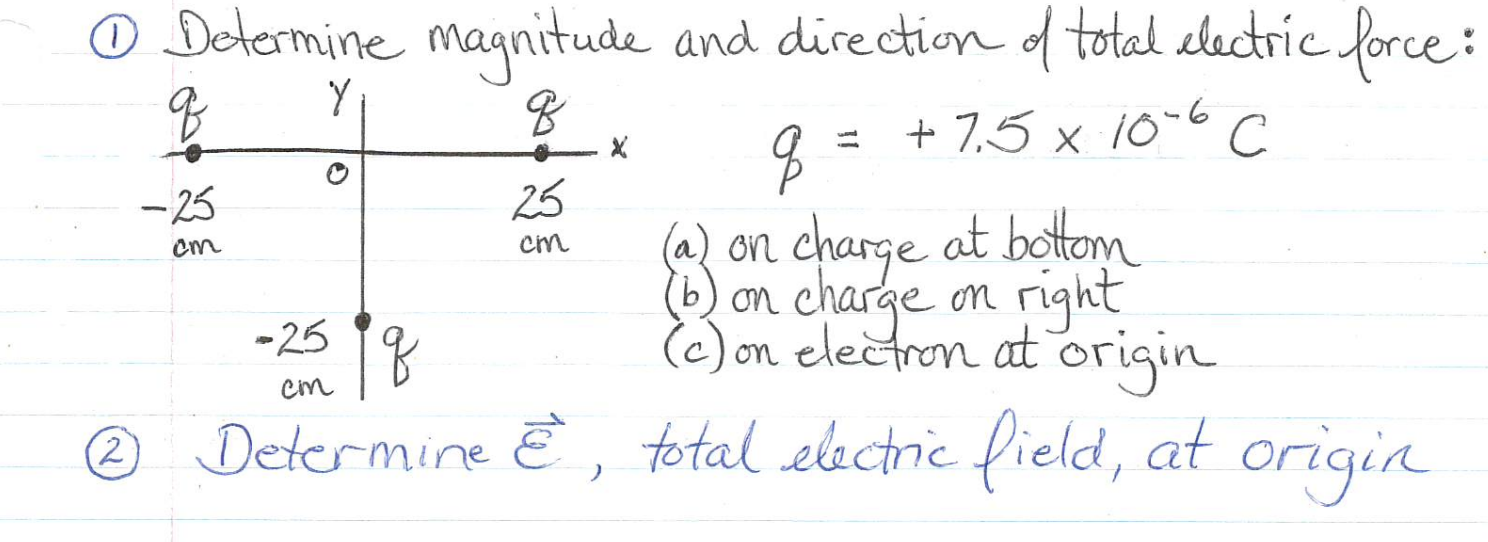 ① Determine magnitude and direction of total electric force:
q Y q
x
q = +7.5 x 10⁻⁶ C
O
-25 cm
25 cm
(a) on charge at bottom
(b) on charge on right
-25 cm
q
(c) on electron at origin
② Determine E⃗, total electric field, at origin